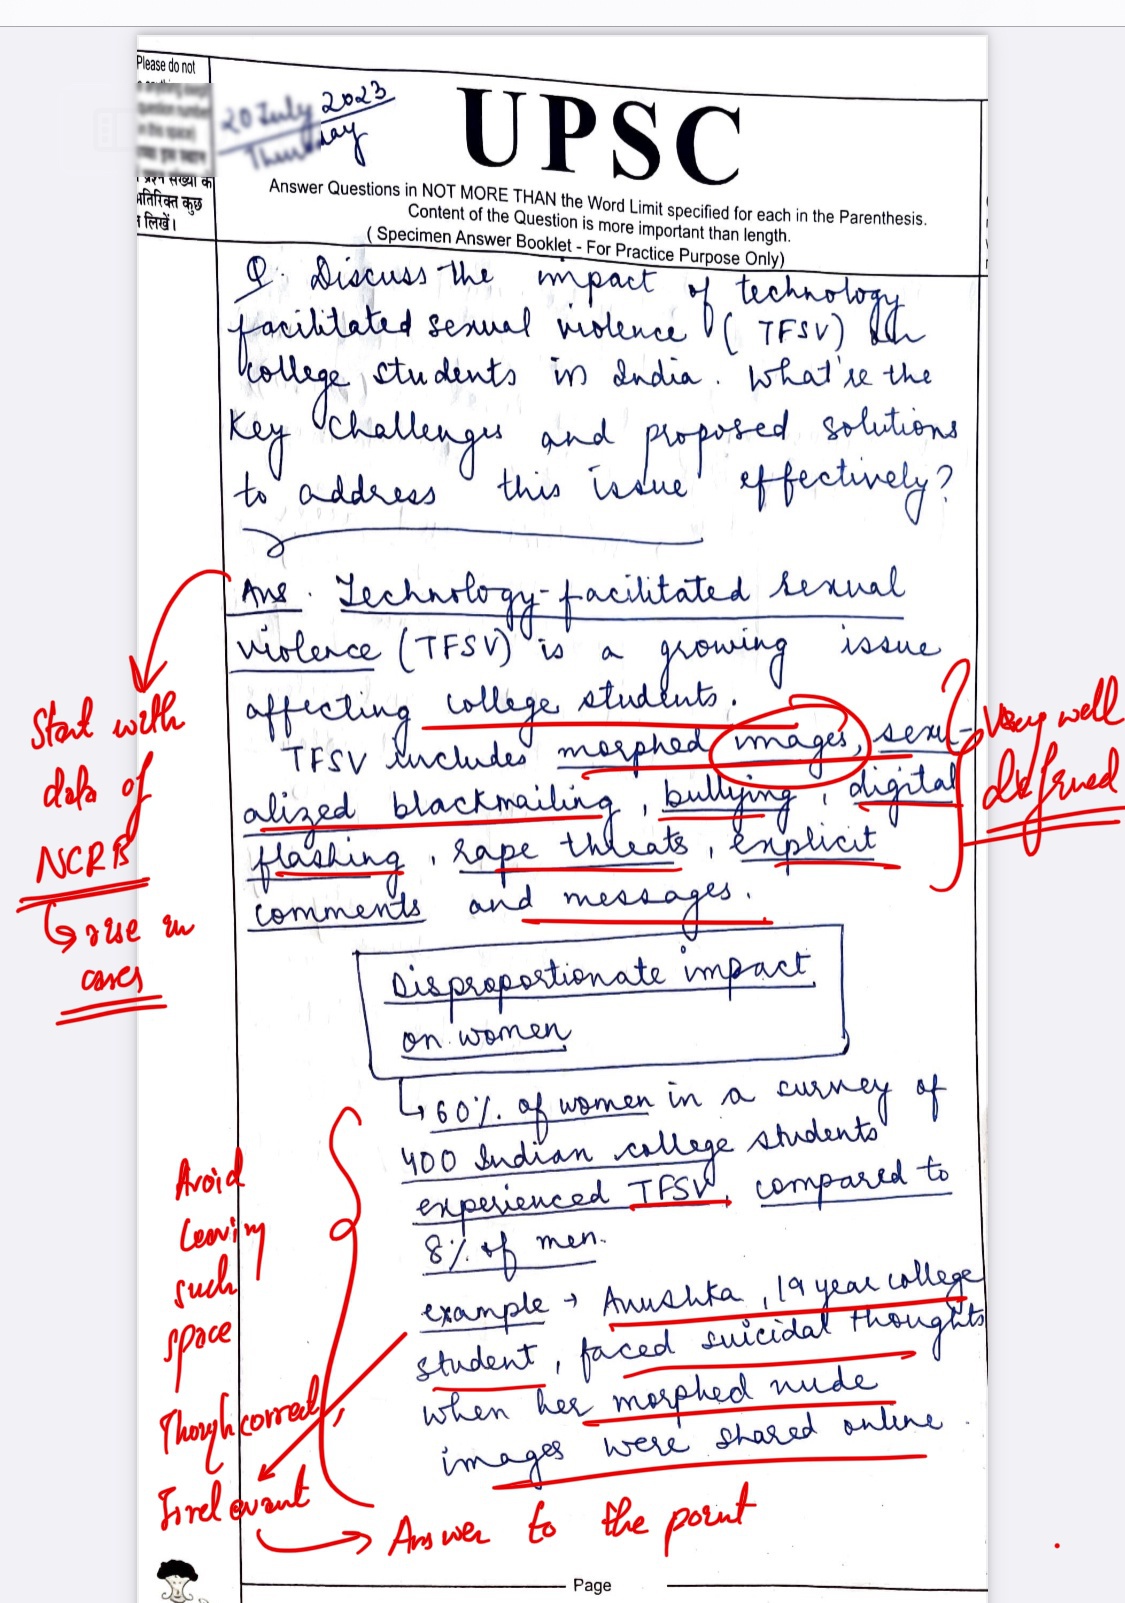 Please do not
20 July 2023
Thursday
UPSC
प्रश्न संख्या के
अतिरिक्त कुछ
न लिखें।
Answer Questions in NOT MORE THAN the Word Limit specified for each in the Parenthesis.
Content of the Question is more important than length.
( Specimen Answer Booklet - For Practice Purpose Only)
Q. Discuss the impact of technology
facilitated sexual violence (TFSV) on
college students in India. What're the
key challenges and proposed solutions
to address this issue effectively?
Ans. Technology-facilitated sexual
violence (TFSV) is a growing issue
affecting college students.
TFSV includes morphed images, sexu-
alized blackmailing, bullying, digital
flashing, rape threats, explicit
comments and messages.
Start with
data of
NCRB
↳ rise in
cases
Very well
defined
Disproportionate impact
on women
↳ 60% of women in a survey of
400 Indian college students
experienced TFSV, compared to
8% of men.
example → Anushka, 19 year college
student, faced suicidal thoughts
when her morphed nude
images were shared online.
Avoid
leaving
such
space
Though correct,
Irrelevant
→ Answer to the point
Page